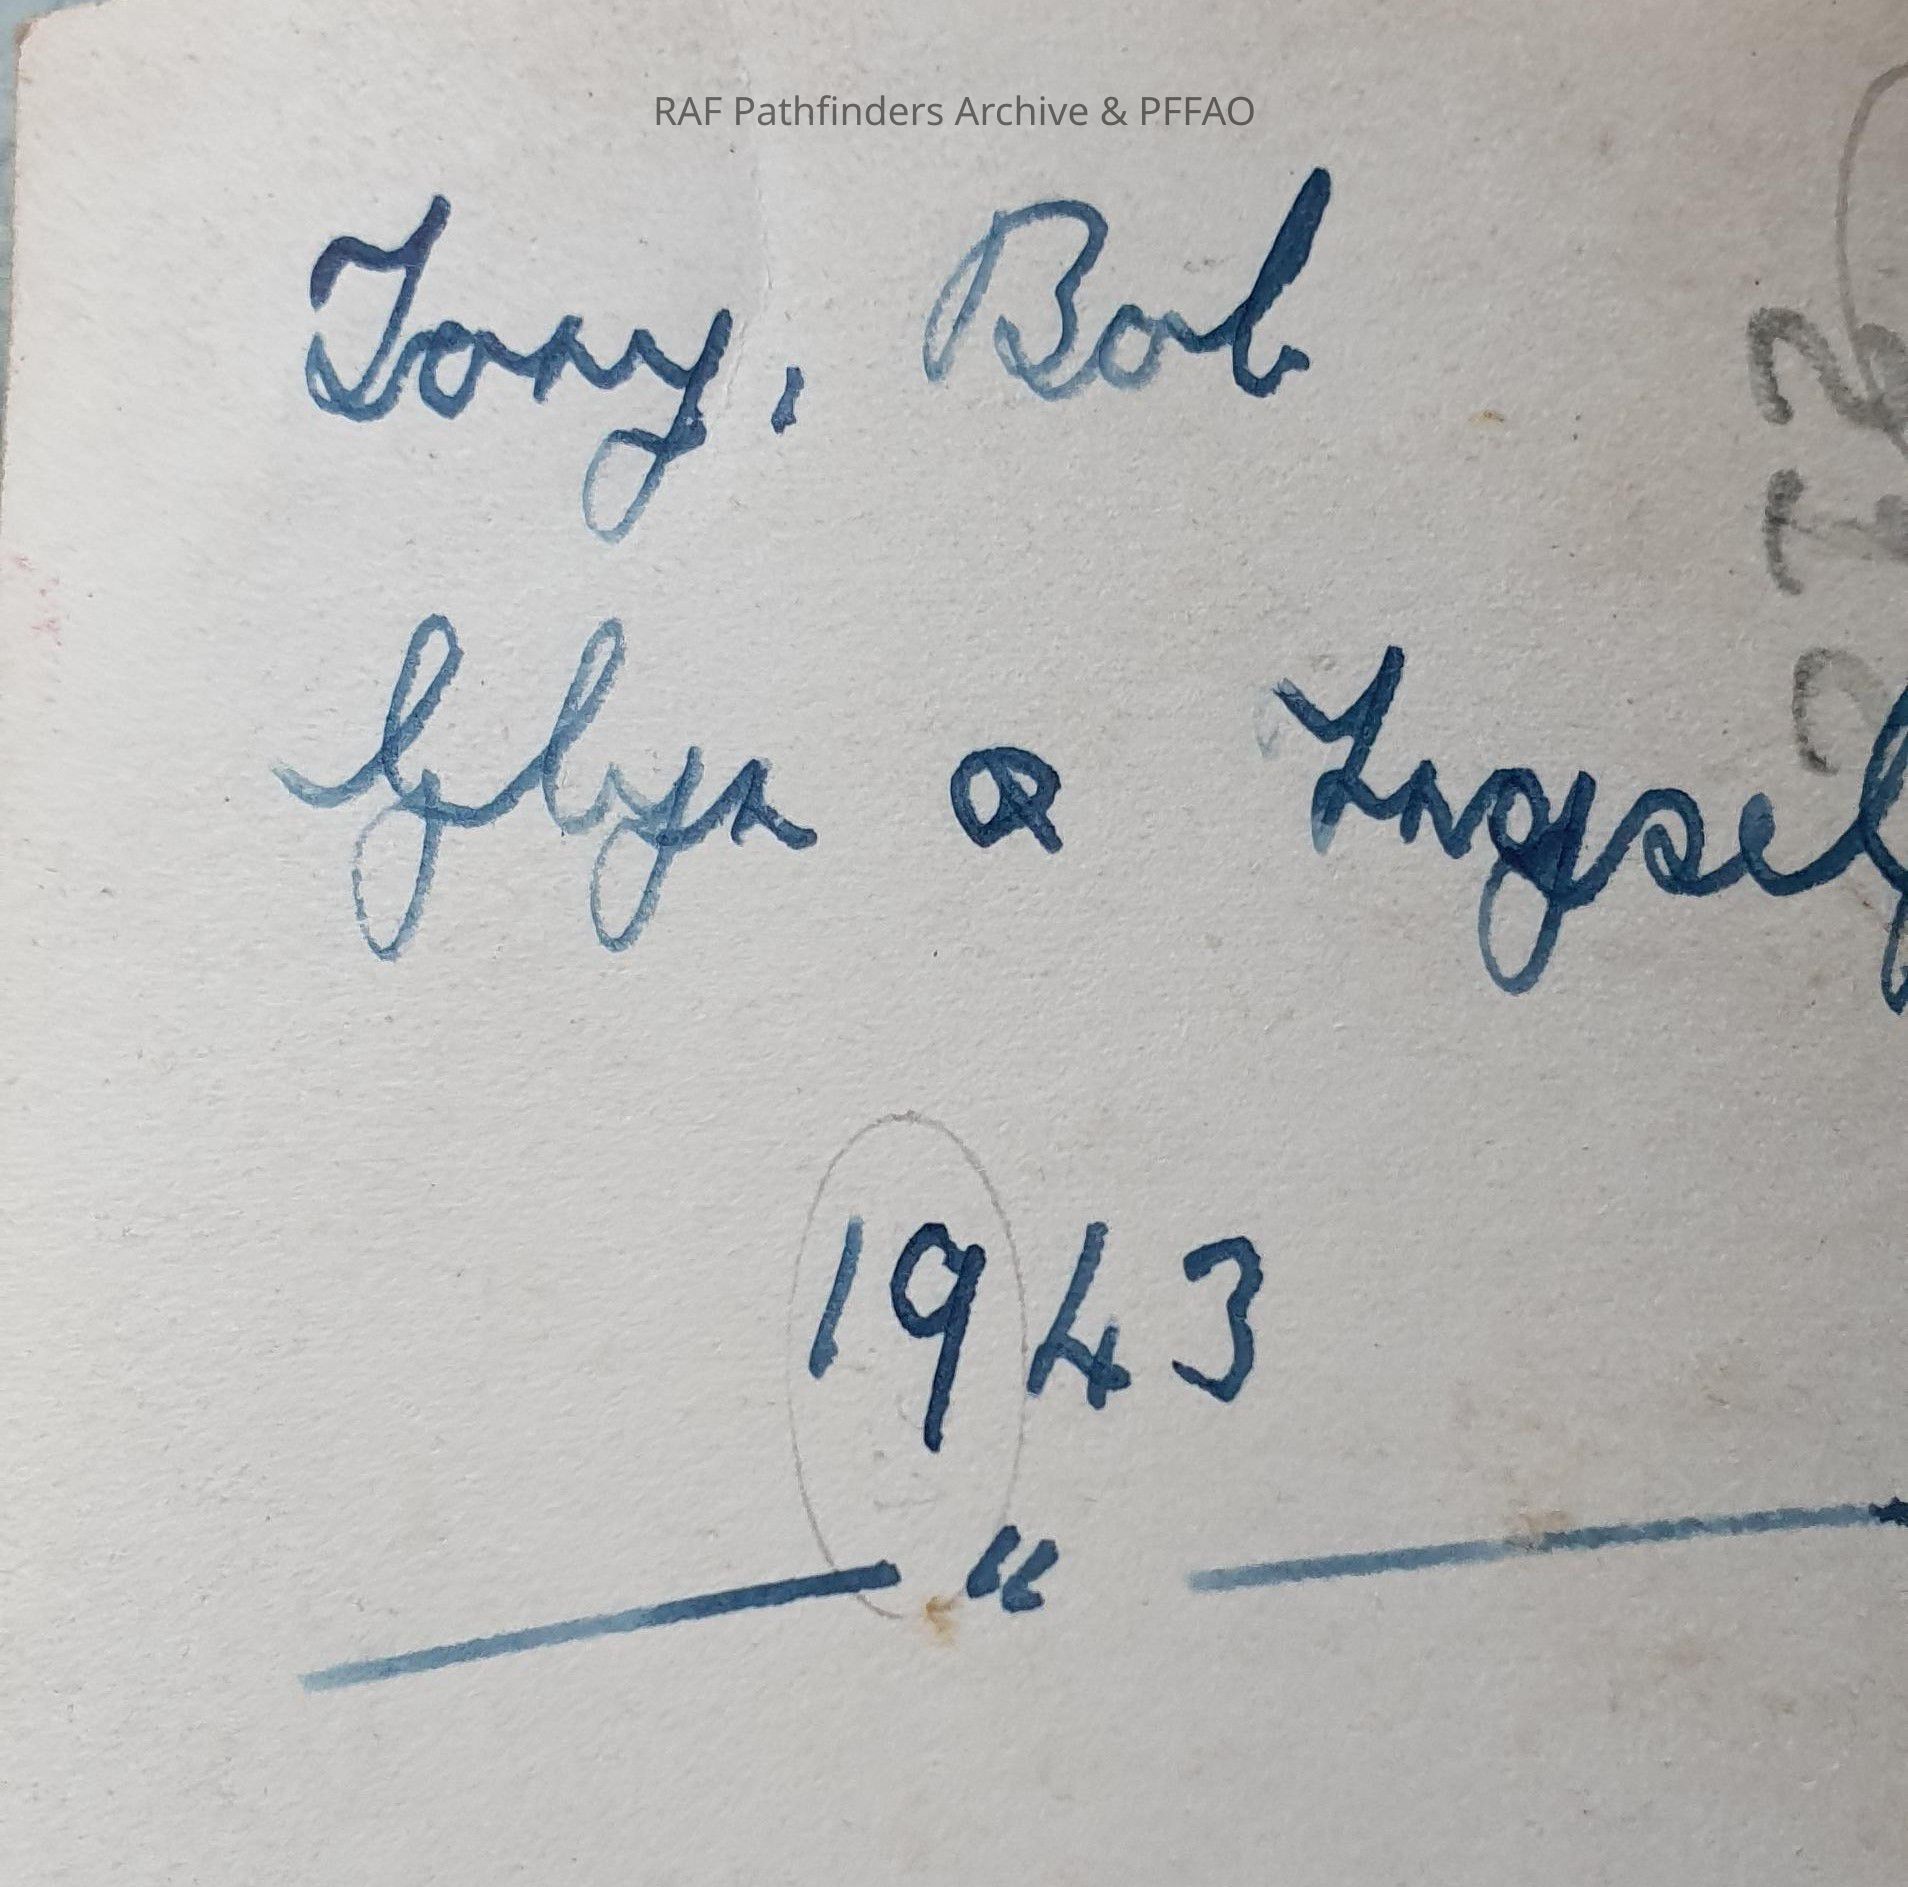 RAF Pathfinders Archive & PFFAO
Tony, Bob
Glyn &
1943
"